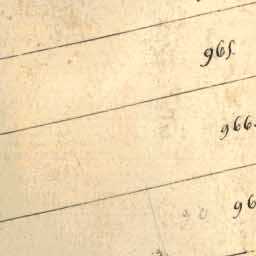 965.
966.
20 96